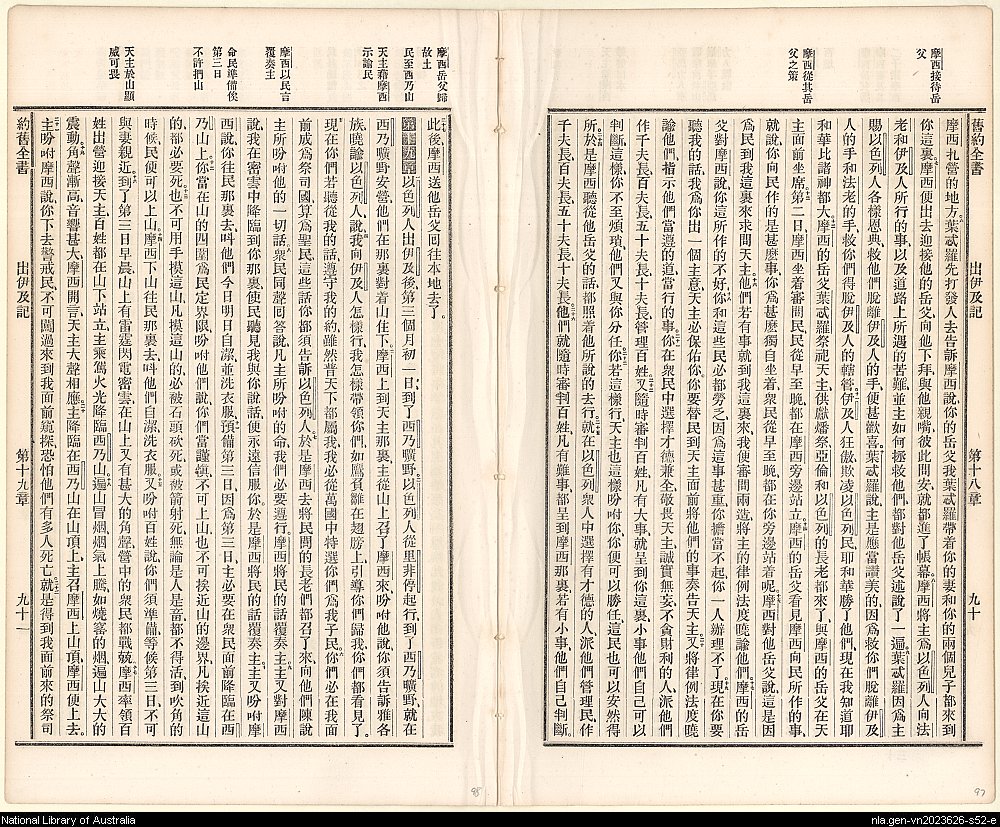 摩西接待岳
父
摩西從其岳
父之策
舊約全書 出伊及記 第十八章 九十
摩西扎營的地方葉忒羅先打發人去告訴摩西說你的岳父我葉忒羅帶着你的妻和你的兩個兒子都來到
你這裏摩西便出去迎接他的岳父向他下拜與他親嘴彼此問安就都進了帳幕摩西將主爲以色列人向法
老和伊及人所行的事以及道路上所遇的苦難並主如何拯救他們都對他岳父述說了一遍葉忒羅因爲主
賜以色列人各樣恩典救他們脫離伊及人的手便甚歡喜葉忒羅說主是應當讚美的因爲救你們脫離伊及
人的手和法老的手救你們得脫伊及人的轄管伊及人狂傲欺凌以色列民耶和華勝了他們現在我知道耶
和華比諸神都大摩西的岳父葉忒羅祭祀天主供獻燔祭亞倫和以色列的長老都來了與摩西的岳父在天
主面前坐席第二日摩西坐着審問民民從早至晚都在摩西旁邊站立摩西的岳父看見摩西向民所作的事
就說你向民作的是甚麼事你爲甚麼獨自坐着衆民從早至晚都在你旁邊站着呢摩西對他岳父說這是因
爲民到我這裏來求問天主他們若有事就到我這裏來我便審問兩造將主的律例法度曉諭他們摩西的岳
父對摩西說你這所作的不好你和這些民必都勞乏因爲這事甚重你擔當不起你一人辦理不了現在你要
聽我的話我爲你出一個主意天主必保佑你你要替民到天主面前將他們的事奏告天主又將律例法度曉
諭他們指示他們當遵的道當行的事你在衆民中選擇才德兼全敬畏天主誠實無妄不貪財利的人派他們
作千夫長百夫長五十夫長十夫長管理百姓又隨時審判百姓凡有大事就呈到你這裏小事他們自己可以
判斷這樣你不至煩瑣他們又與你分任你若這樣行天主也這樣吩咐你你便可以勝任這民也可以安然得
所於是摩西聽從他岳父的話都照着他所說的去行就在以色列衆人中選擇有才德的人派他們管理民作
千夫長百夫長五十夫長十夫長他們就隨時審判百姓凡有難事都呈到摩西那裏若有小事他們自己判斷
摩西岳父歸
故土
民至西乃山
天主藉摩西
示諭民
摩西以民言
覆奏主
命民準備俟
第三日
不許捫山
天主於山顯
威可畏
此後摩西送他岳父回往本地去了
第十九章以色列人出伊及後第三個月初一日到了西乃曠野以色列人從里非停起行到了西乃曠野就在
西乃曠野安營他們在那裏對着山住下摩西上到天主那裏主從山上召了摩西來吩咐他說你須告訴雅各
族曉諭以色列人說我向伊及人怎樣行我怎樣帶領你們如鷹負雛在翅膀上引導你們歸我你們都看見了
現在你們若聽從我的話遵守我的約雖然普天下都屬我我必從萬國中特選你們爲我子民你們必在我面
前成爲祭司國算爲聖民這些話你都須告訴以色列人於是摩西去將民間的長老們都召了來向他們陳說
主所吩咐他的一切話衆民同聲回答說凡主所吩咐的命我們必要遵行摩西將民的話覆奏主主又對摩西
說我在密雲中降臨到你那裏使民聽見我與你說話便永遠信服你於是摩西將民的話覆奏主主又吩咐摩
西說你往民那裏去叫他們今日明日自潔並洗衣服預備第三日因爲第三日主必要在衆民面前降臨在西
乃山上你當在山的四圍爲民定界限吩咐他們說你們當謹愼不可上山也不可挨近山的邊界凡挨近這山
的都必要死也不可用手摸這山凡摸這山的必被石頭砍死或被箭射死無論是人是畜都不得活到吹角的
時候民便可以上山摩西下山往民那裏去叫他們自潔洗衣服又吩咐百姓說你們須準備等候第三日不可
與妻親近到了第三日早晨山上有雷霆閃電密雲在山上又有甚大的角聲營中的衆民都戰兢摩西率領百
姓出營迎接天主百姓都在山下站立主乘駕火光降臨西乃山遍山冒烟烟氣上騰如燒窰的烟遍山大大的
震動角聲漸高音響甚大摩西開言天主大聲相應主降臨在西乃山在山頂上主召摩西上山頂摩西便上去
主吩咐摩西說你下去警戒民不可闖過來到我面前窺探恐怕他們有多人死亡就是得到我面前來的祭司
約舊全書 出伊及記 第十九章 九十一
98
97
National Library of Australia
nla.gen-vn2023626-s52-e